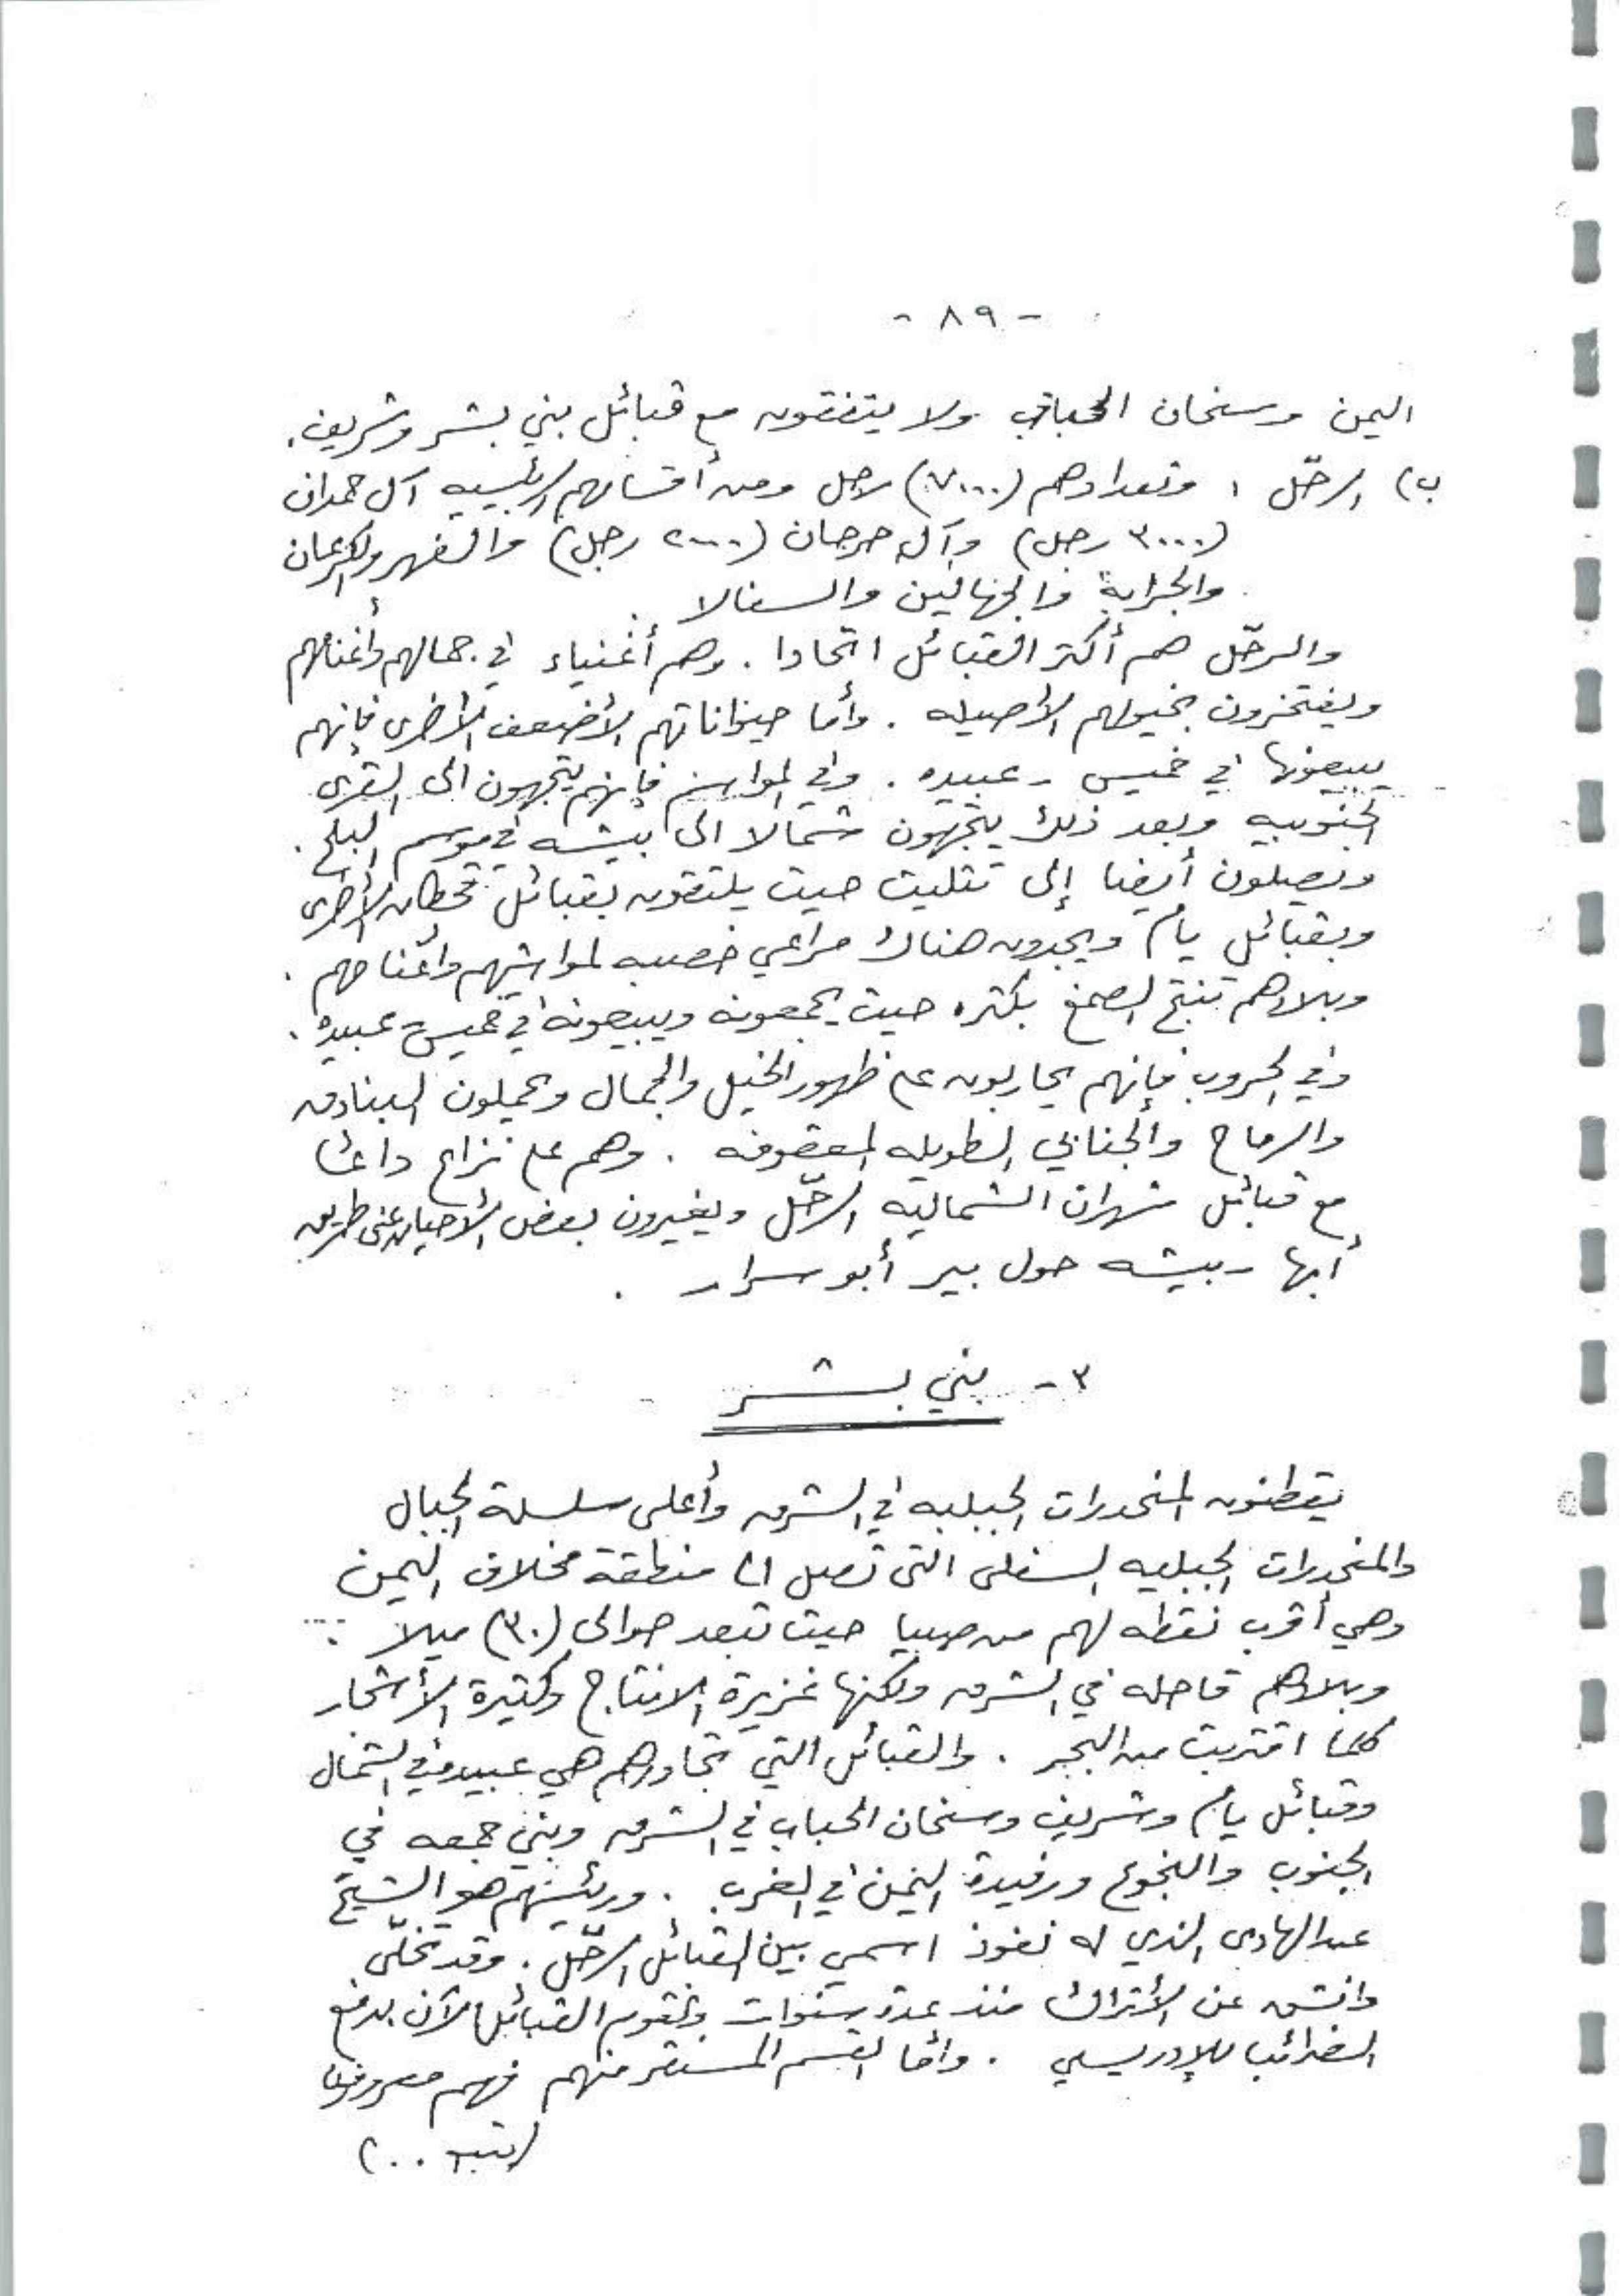 - ٨٩ -
اليمن وسنحان الحباب ولا يتفقون مع قبائل بني بشر وشريف.
ب) الرحّل : وتعدادهم (٧٠٠٠) رجل ومن أقسامهم الرئيسيه آل حمدان
(٣٠٠٠ رجل) وآل جرجان (٢٠٠٠ رجل) والفهر والكرعان
والجرابة والجهالين والسفالا .
والرحّل هم أكثر القبائل اتحادا . وهم أغنياء في جمالهم وأغنامهم
ويفتخرون بخيولهم الأصيله . وأما حيواناتهم الأضعف الأخرى فإنهم
يبيعونها في خميس - عبيده . وفي المواسم فإنهم يتجهون الى القرى
الجنوبيه وبعد ذلك يتجهون شمالا الى بيشه في موسم البلح .
ويصلون أيضا إلى تثليث حيث يلتقون بقبائل قحطان الأخرى
وبقبائل يام ويجدون هناك مراعي خصبه لمواشيهم وأغنامهم .
وبلادهم تنتج الصمغ بكثره حيث يجمعونه ويبيعونه في خميس عبيده .
وفي الحروب فإنهم يحاربون على ظهور الخيل والجمال ويحملون البنادق
والرماح والجنابي الطويله المعقوفه . وهم على نزاع دائما
مع قبائل شهران الشماليه الرحّل ويغيرون بعض الأحيان على طريق
أبها - بيشه حول بير أبو سرار .
٣ - بني بشر
يقطنون المنحدرات الجبليه في الشرق وأعلى سلسلة الجبال
والمنحدرات الجبليه السفلى التي تصل الى منطقة مخلاف اليمن
وهي أقرب نقطه لهم من صبيا حيث تبعد حوالى (٣٠) ميلا .
وبلادهم قاحله في الشرق ولكنها غزيرة الانتاج وكثيرة الأشجار
كلما اقتربت من البحر . والقبائل التي تجاورهم هي عبيده في الشمال
وقبائل يام وشريف وسنحان الحباب في الشرق وبني جمعه في
الجنوب والنجوع ورفيدة اليمن في الغرب . ورئيسهم هو الشيخ
عبد الهادى الذي له نفوذ اسمي بين القبائل الرحّل . وقد تخلّى
وانشق عن الأتراك منذ عدة سنوات وتقوم القبائل الآن بدفع
الضرائب للإدريسي . وأما القسم المستقر منهم فهم معروفون
(يتبع ..)